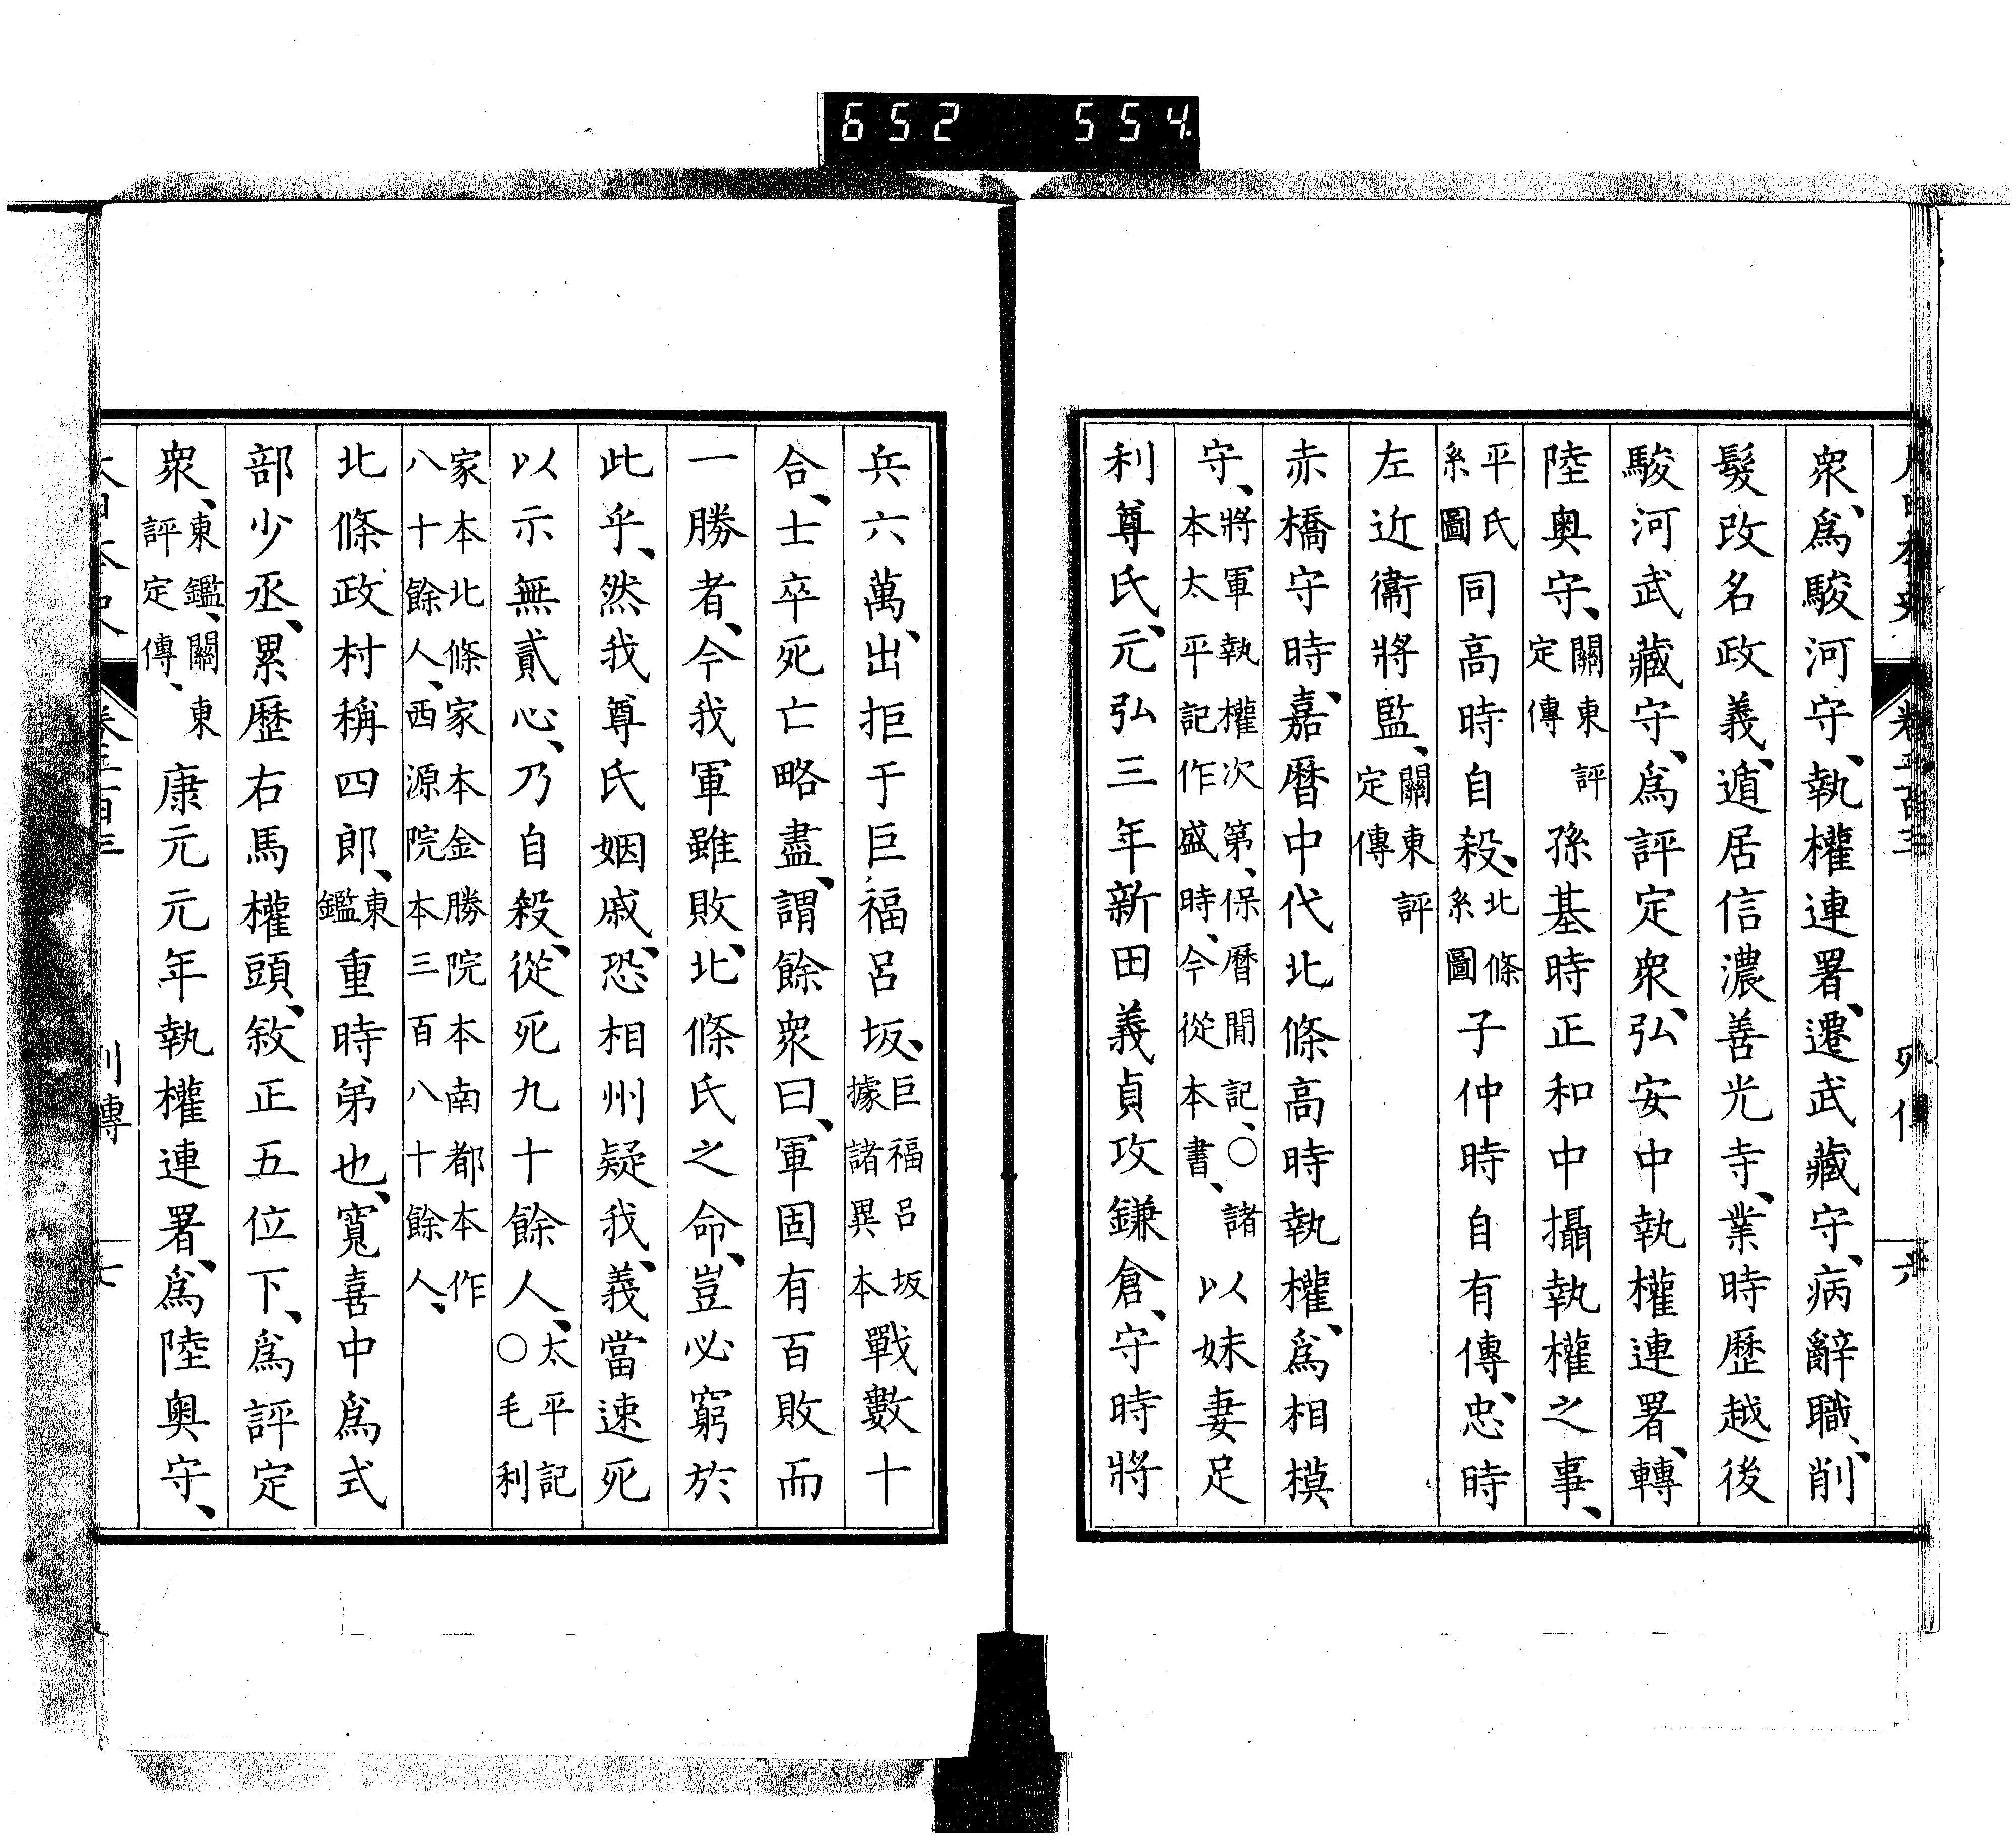 652 554
衆、爲駿河守、執權連署、遷武藏守、病辭職、削
髮改名政義、遁居信濃善光寺、業時歷越後
駿河武藏守、爲評定衆、弘安中執權連署、轉
陸奥守、關東評定傳孫基時正和中攝執權之事、
平氏系圖同高時自殺、北條系圖子仲時自有傳、忠時
左近衞將監、關東評定傳
赤橋守時、嘉曆中代北條高時執權、爲相模
守、將軍執權次第、保曆間記、○諸本太平記作盛時、今從本書、以妹妻足
利尊氏、元弘三年新田義貞攻鎌倉、守時將
兵六萬、出拒于巨福呂坂、巨福呂坂據諸異本戰數十
合、士卒死亡略盡、謂餘衆曰、軍固有百敗而
一勝者、今我軍雖敗、北條氏之命、豈必窮於
此乎、然我尊氏姻戚、恐相州疑我、義當速死
以示無貳心、乃自殺、從死九十餘人、太平記○毛利
家本北條家本金勝院本南都本作八十餘人、西源院本三百八十餘人、
北條政村稱四郎、東鑑重時弟也、寬喜中爲式
部少丞、累歷右馬權頭、敘正五位下、爲評定
衆、東鑑、關東評定傳、康元元年執權連署、爲陸奥守、
列傳